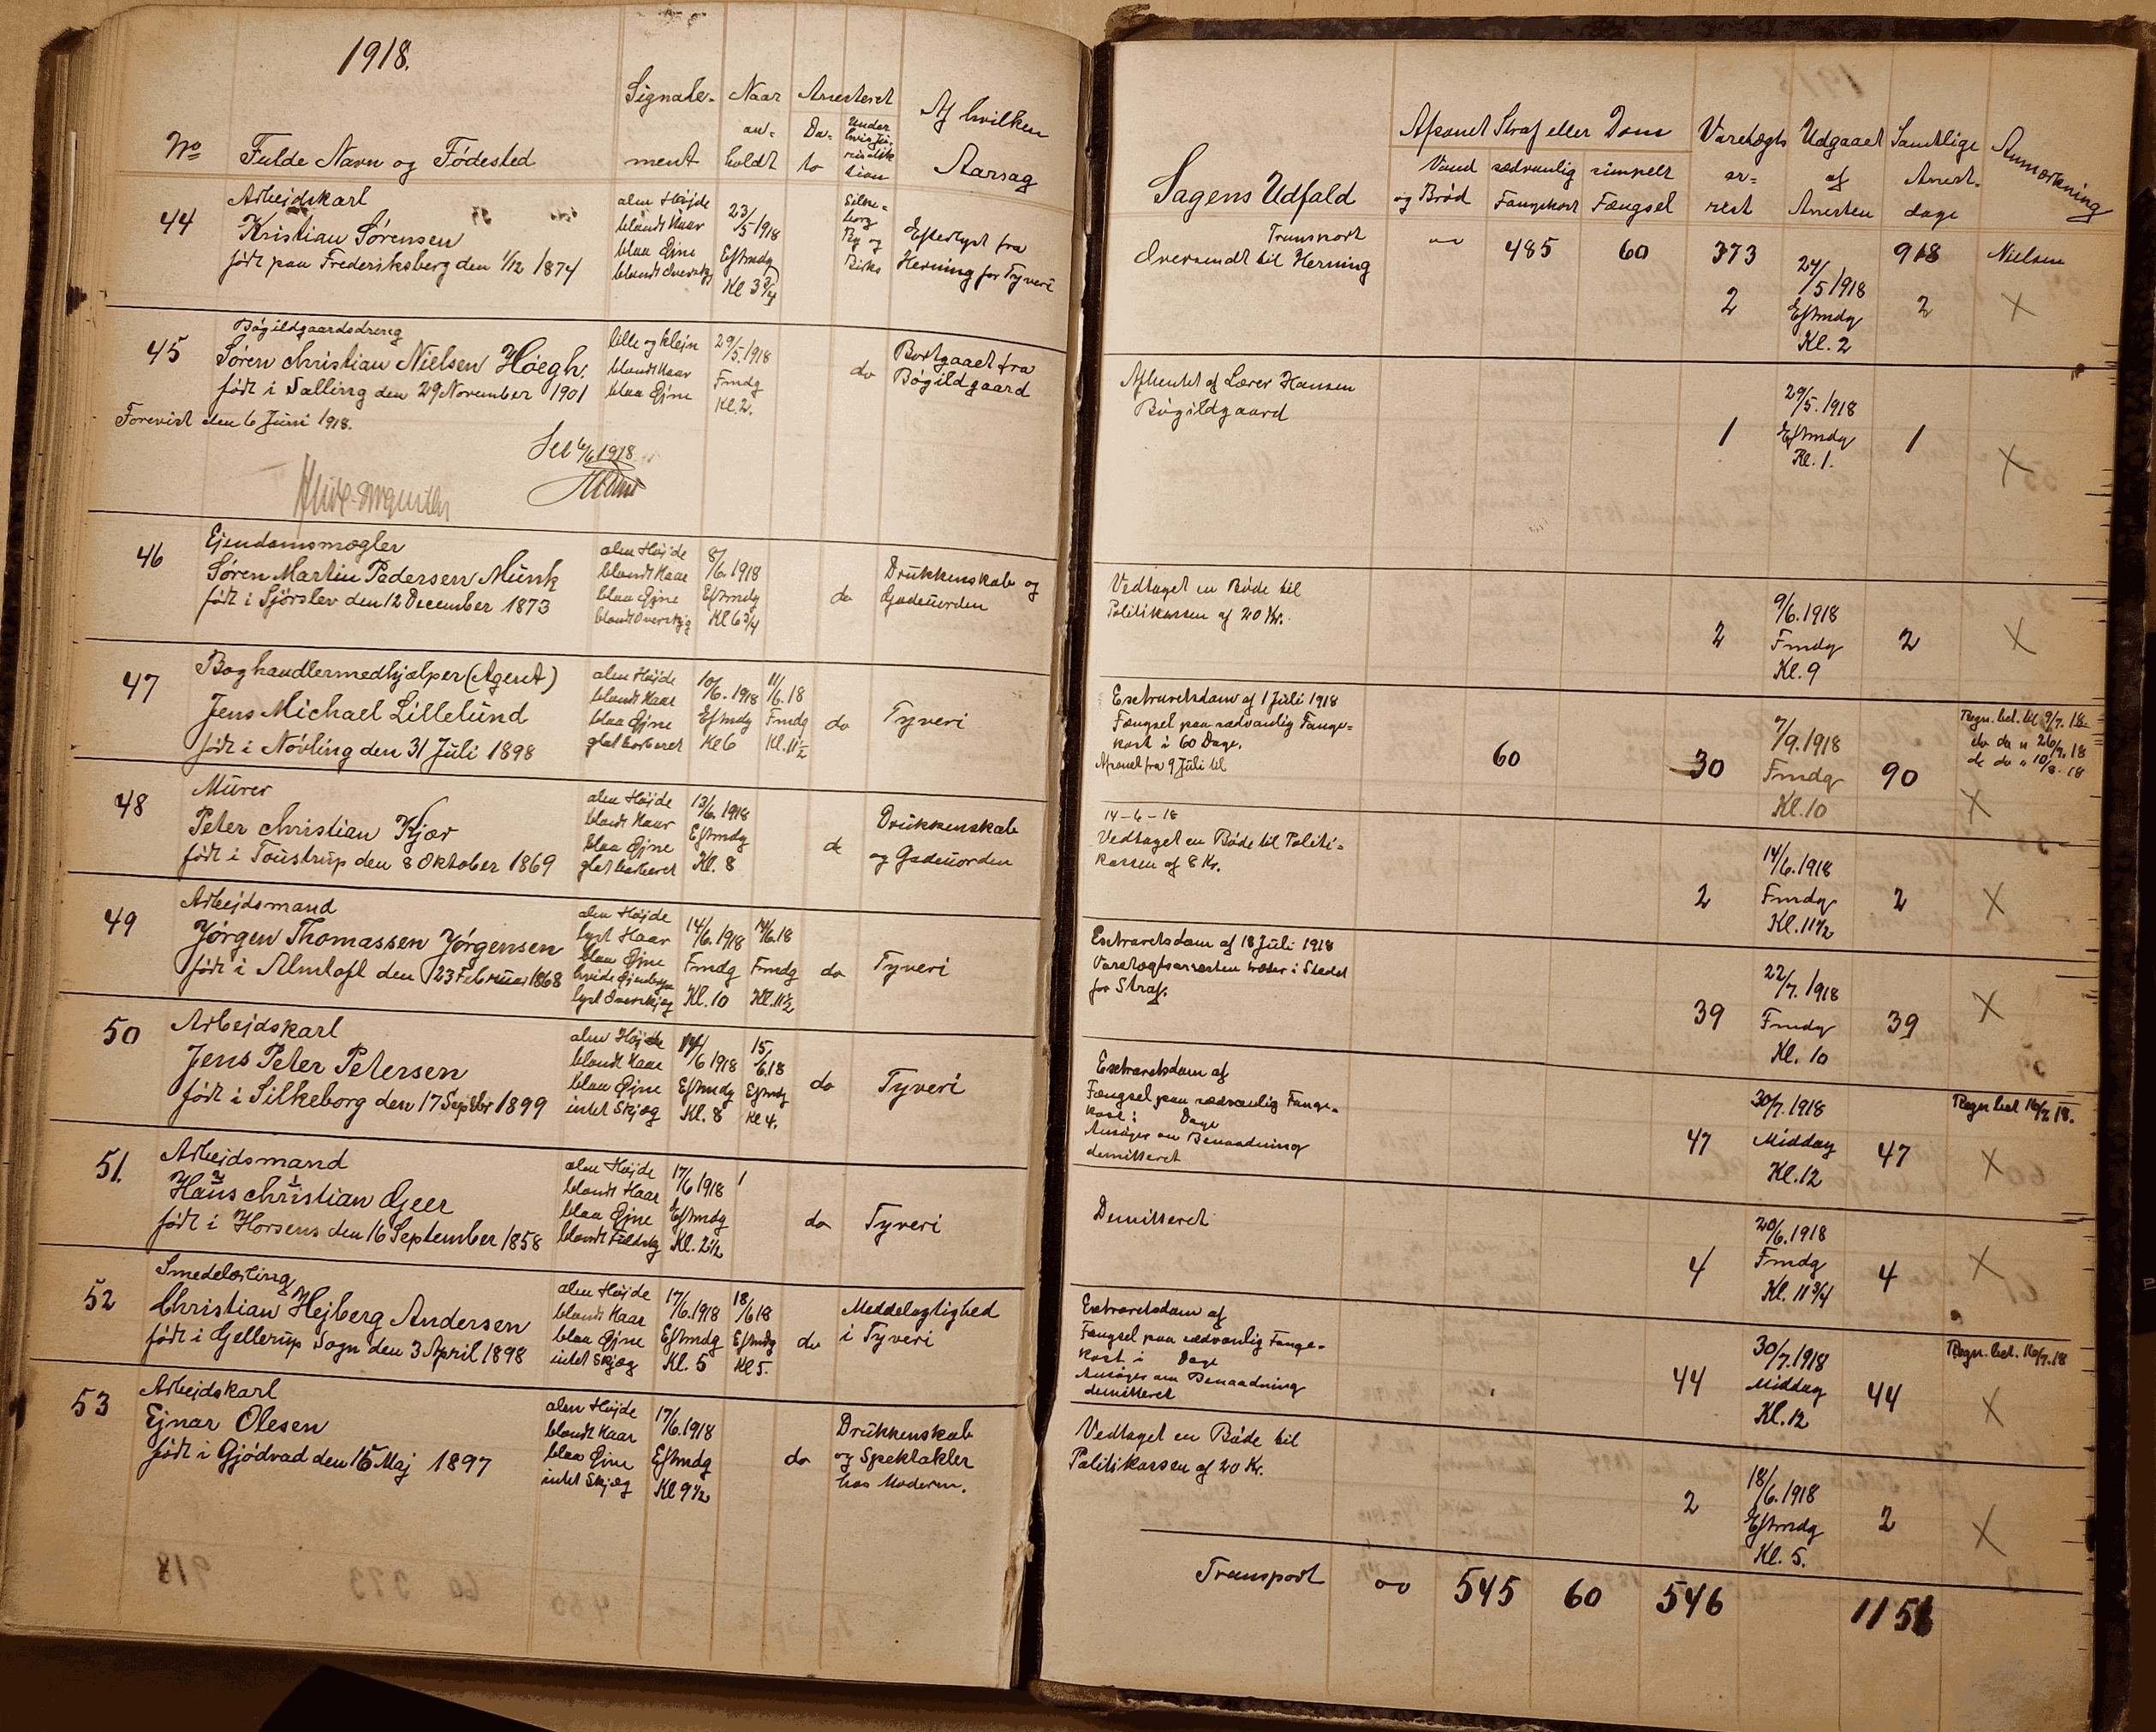 1918.
No Fulde Navn og Fødested
Signale-
ment
Naar
an-
holdt
Arresteret
Da-
to
Under
hvis Ju-
risdik
tion
Af hvilken
Aarsag
44
Arbejdskarl
Kristian Sørensen
født paa Frederiksberg den 1/12 1874
alm Højde
blondt Haar
blaa Øjne
blondt Overskjg
23/5 1918
Eftmdg
Kl 3 3/4
Silke-
borg
By og
Birks
Efterlyst fra
Herning for Tyveri
45
Bøgildgaardsdreng
Søren Christian Nielsen Høegh.
født i Salling den 29 November 1901
lille og klejn
blondt Haar
blaa Øjne
29/5. 1918
Fmdg
Kl. 2.
do
Bortgaaet fra
Bøgildgaard
Forevist den 6 Juni 1918.
Set 6/6 1918
46
Ejendomsmægler
Søren Martin Pedersen Munk
født i Sjørslev den 12 December 1873
alm Højde
blondt Haar
blaa Øjne
blondt Overskjg
8/6. 1918
Eftmdg
Kl 6 3/4
do
Drukkenskab og
Gadeuorden
47
Boghandlermedhjælper (Agent)
Jens Michael Lillelund
født i Nøvling den 31 Juli 1898
alm Højde
blondt Haar
blaa Øjne
glat barberet
10/6. 1918
Eftmdg
Kl 6
11/6. 18
Fmdg
Kl. 11 1/2
do
Tyveri
48
Murer
Peter Christian Kjær
født i Toustrup den 8 Oktober 1869
alm Højde
blondt Haar
blaa Øjne
glat barberet
13/6. 1918
Eftmdg
Kl. 8
do
Drukkenskab
og Gadeuorden
49
Arbejdsmand
Jørgen Thomassen Jørgensen
født i Almtoft den 23 Februar 1868
alm Højde
lyst Haar
blaa Øjne
hvide Øjenbryn
lyst Overskjæg
14/6. 1918
Fmdg
Kl. 10
14/6. 18
Fmdg
Kl. 11 1/2
do
Tyveri
50
Arbejdskarl
Jens Peter Petersen
født i Silkeborg den 17 Septbr 1899
alm Højde
blondt Haar
blaa Øjne
intet Skjæg
14/6 1918
Eftmdg
Kl. 8
15/6.18
Eftmdg
Kl 4.
do
Tyveri
51.
Arbejdsmand
Hans Christian Geer
født i Horsens den 16 September 1858
alm Højde
blondt Haar
blaa Øjne
blondt Fuldskjg
17/6 1918
Eftmdg
Kl. 2 1/2
do
Tyveri
52
Smedelærling
Christian Hejberg Andersen
født i Gjellerup Sogn den 3 April 1898
alm Højde
blondt Haar
blaa Øjne
intet Skjæg
17/6. 1918
Eftmdg
Kl. 5
18/6 18
Eftmdg
Kl 5.
do
Meddelagtighed
i Tyveri
53
Arbejdskarl
Ejnar Olesen
født i Gjødvad den 15 Maj 1897
alm Højde
blondt Haar
blaa Øjne
intet Skjæg
17/6. 1918
Eftmdg
Kl 9 1/2
do
Drukkenskab
og Spektakler
hos Moderen.
Sagens Udfald
Afsonet Straf eller Dom
Vand
og Brød
sædvanlig
Fangekost
simpelt
Fængsel
Varetægts
ar-
rest
Udgaaet
af
Arresten
Samtlige
Arrest-
dage
Anmærkning
Transport
485 60 373 918 Nielsen
Oversendt til Herning
2
24/5 1918
Eftmdg
Kl. 2
2
X
Afhentet af Lærer Hansen
Bøgildgaard
1
29/5. 1918
Eftmdg
Kl. 1.
1
X
Vedtaget en Bøde til
Politikassen af 20 Kr.
2
9/6. 1918
Fmdg
Kl. 9
2
X
Extraretsdom af 1 Juli 1918
Fængsel paa sædvanlig Fange-
kost i 60 Dage.
Afsonet fra 9 Juli til
60
30
7/9. 1918
Fmdg
Kl. 10
90
Regn. bet. til 9/7. 18
do do " 26/7. 18
do do " 10/8. 18
X
14-6-18
Vedtaget en Bøde til Politi-
kassen af 8 Kr.
2
14/6. 1918
Fmdg
Kl. 11 1/2
2
X
Extraretsdom af 18 Juli 1918
Varetægtsarresten træder i Stedet
for Straf.
39
22/7. 1918
Fmdg
Kl. 10
39
X
Extraretsdom af
Fængsel paa sædvanlig Fange-
kost i Dage
Ansøges om Benaadning
demitteret
47
30/7. 1918
Middag
Kl. 12
47
Regn bet 16/7 18.
X
Demitteret
4
20/6. 1918
Fmdg
Kl. 11 3/4
4
X
Extraretsdom af
Fængsel paa sædvanlig Fange-
kost i Dage
Ansøges om Benaadning
demitteret
44
30/7. 1918
Middag
Kl. 12
44
Regn. bet. 16/7. 18
X
Vedtaget en Bøde til
Politikassen af 20 Kr.
2
18/6. 1918
Eftmdg
Kl. 5.
2
X
Transport 545 60 546 1151